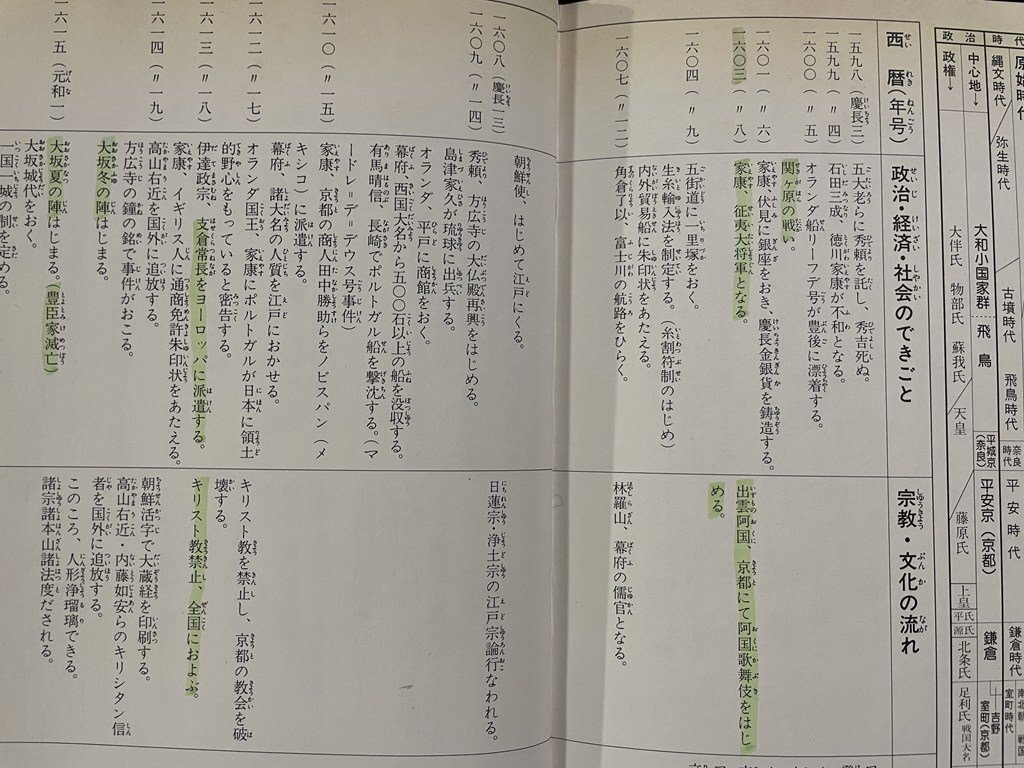 時代
原始時代
縄文時代
弥生時代
古墳時代
飛鳥時代
奈良時代
平安時代
鎌倉時代
南北朝
室町時代
戦国
政治
中心地→
大和小国家群
飛鳥
平城京（奈良）
平安京（京都）
鎌倉
吉野
室町（京都）
政権→
大伴氏
物部氏
蘇我氏
天皇
藤原氏
上皇
平氏
源氏
北条氏
足利氏
戦国大名
西暦（年号）
政治・経済・社会のできごと
宗教・文化の流れ
一五九八（慶長三）
五大老らに秀頼を託し、秀吉死ぬ。
一五九九（〃四）
石田三成、徳川家康が不和となる。
一六〇〇（〃五）
オランダ船リーフデ号が豊後に漂着する。
関ヶ原の戦い。
一六〇一（〃六）
家康、伏見に銀座をおき、慶長金銀貨を鋳造する。
一六〇三（〃八）
家康、征夷大将軍となる。
出雲阿国、京都にて阿国歌舞伎をはじ
める。
一六〇四（〃九）
五街道に一里塚をおく。
生糸輸入法を制定する。（糸割符制のはじめ）
内外貿易船に朱印状をあたえる。
一六〇七（〃一二）
角倉了以、富士川の航路をひらく。
林羅山、幕府の儒官となる。
朝鮮使、はじめて江戸にくる。
一六〇八（慶長一三）
秀頼、方広寺の大仏殿再興をはじめる。
日蓮宗・浄土宗の江戸宗論行なわれる。
一六〇九（〃一四）
島津家久が琉球に出兵する。
オランダ、平戸に商館をおく。
幕府、西国大名から五〇〇石以上の船を没収する。
有馬晴信、長崎でポルトガル船を撃沈する。（マ
ードレ＝デ＝デウス号事件）
一六一〇（〃一五）
家康、京都の商人田中勝助らをノビスパン（メ
キシコ）に派遣する。
幕府、諸大名の人質を江戸におかせる。
一六一二（〃一七）
オランダ国王、家康にポルトガルが日本に領土
的野心をもっていると密告する。
キリスト教を禁止し、京都の教会を破
壊する。
一六一三（〃一八）
伊達政宗、支倉常長をヨーロッパに派遣する。
家康、イギリス人に通商免許朱印状をあたえる。
キリスト教禁止、全国におよぶ。
一六一四（〃一九）
高山右近を国外に追放する。
方広寺の鐘の銘で事件がおこる。
大坂冬の陣はじまる。
朝鮮活字で大蔵経を印刷する。
高山右近・内藤如安らのキリシタン信
者を国外に追放する。
このころ、人形浄瑠璃できる。
一六一五（元和一）
大坂夏の陣はじまる。（豊臣家滅亡）
大坂城代をおく。
一国一城の制を定める。
諸宗諸本山諸法度だされる。